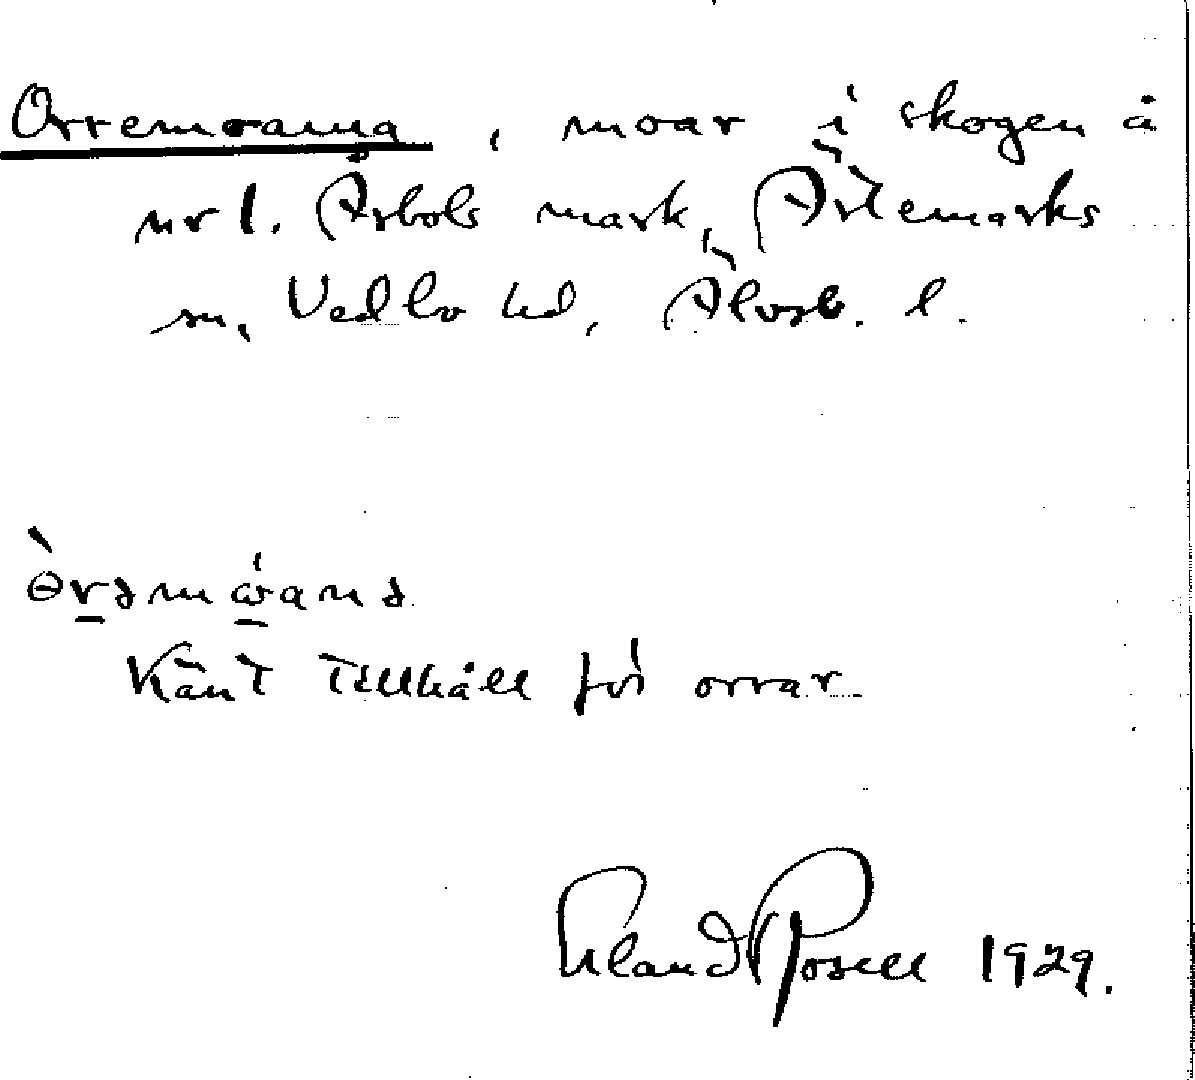 Orremoarna, moar i skogen å
nr 1. Årbols mark, Ärtemarks
sn, Vedbo hd, Älvsb. l.
Känt tillhåll för orrar.
Erland Rosell 1929.